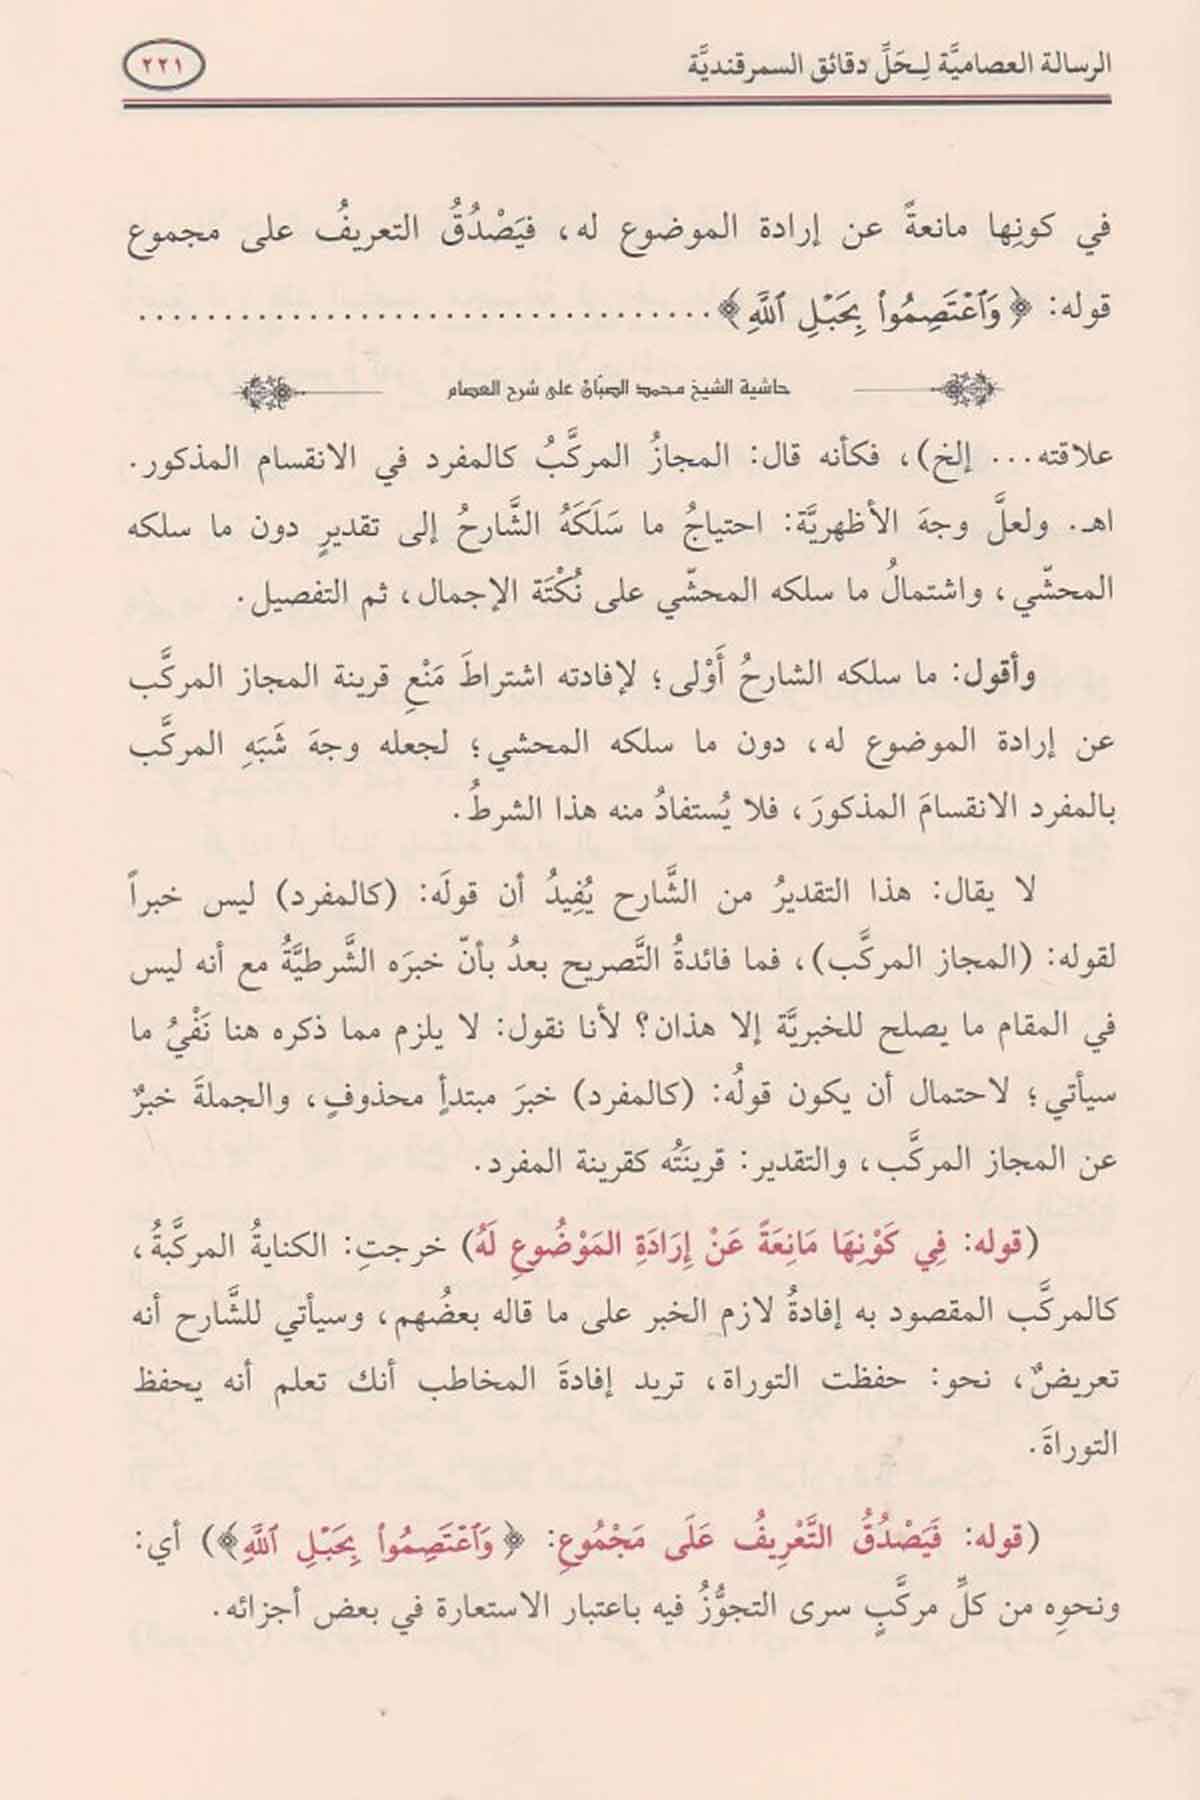 الرسالة العصاميَّة لِحَلِّ دقائق السمرقنديَّة
٢٢١
في كونِها مانعةً عن إرادة الموضوع له، فيَصْدُقُ التعريفُ على مجموع
قوله: ﴿وَٱعْتَصِمُوا۟ بِحَبْلِ ٱللَّهِ﴾.................................
حاشية الشيخ محمد الصبّان على شرح العصام
علاقته... إلخ)، فكأنه قال: المجازُ المركَّبُ كالمفرد في الانقسام المذكور.
اهـ. ولعلَّ وجهَ الأظهريَّة: احتياجُ ما سَلَكَهُ الشَّارحُ إلى تقديرٍ دون ما سلكه
المحشّي، واشتمالُ ما سلكه المحشّي على نُكْتَة الإجمال، ثم التفصيل.
وأقول: ما سلكه الشارحُ أَوْلى؛ لإفادته اشتراطَ مَنْعِ قرينة المجاز المركَّب
عن إرادة الموضوع له، دون ما سلكه المحشي؛ لجعله وجهَ شَبَهِ المركَّب
بالمفرد الانقسامَ المذكورَ، فلا يُستفادُ منه هذا الشرطُ.
لا يقال: هذا التقديرُ من الشَّارح يُفِيدُ أن قولَه: (كالمفرد) ليس خبراً
لقوله: (المجاز المركَّب)، فما فائدةُ التَّصريح بعدُ بأنّ خبرَه الشَّرطيَّةُ مع أنه ليس
في المقام ما يصلح للخبريَّة إلا هذان؟ لأنا نقول: لا يلزم مما ذكره هنا نَفْيُ ما
سيأتي؛ لاحتمال أن يكون قولُه: (كالمفرد) خبرَ مبتدأٍ محذوفٍ، والجملةَ خبرٌ
عن المجاز المركَّب، والتقدير: قرينَتُه كقرينة المفرد.
(قوله: فِي كَوْنِهَا مَانِعَةً عَنْ إِرَادَةِ المَوْضُوعِ لَهُ) خرجتِ: الكنايةُ المركَّبةُ،
كالمركَّب المقصود به إفادةُ لازم الخبر على ما قاله بعضُهم، وسيأتي للشَّارح أنه
تعريضٌ، نحو: حفظت التوراة، تريد إفادةَ المخاطب أنك تعلم أنه يحفظ
التوراةَ.
(قوله: فَيَصْدُقُ التَّعْرِيفُ عَلَى مَجْمُوعِ: ﴿وَٱعْتَصِمُوا۟ بِحَبْلِ ٱللَّهِ﴾) أي:
ونحوِه من كلِّ مركَّبٍ سرى التجوُّزُ فيه باعتبار الاستعارة في بعض أجزائه.